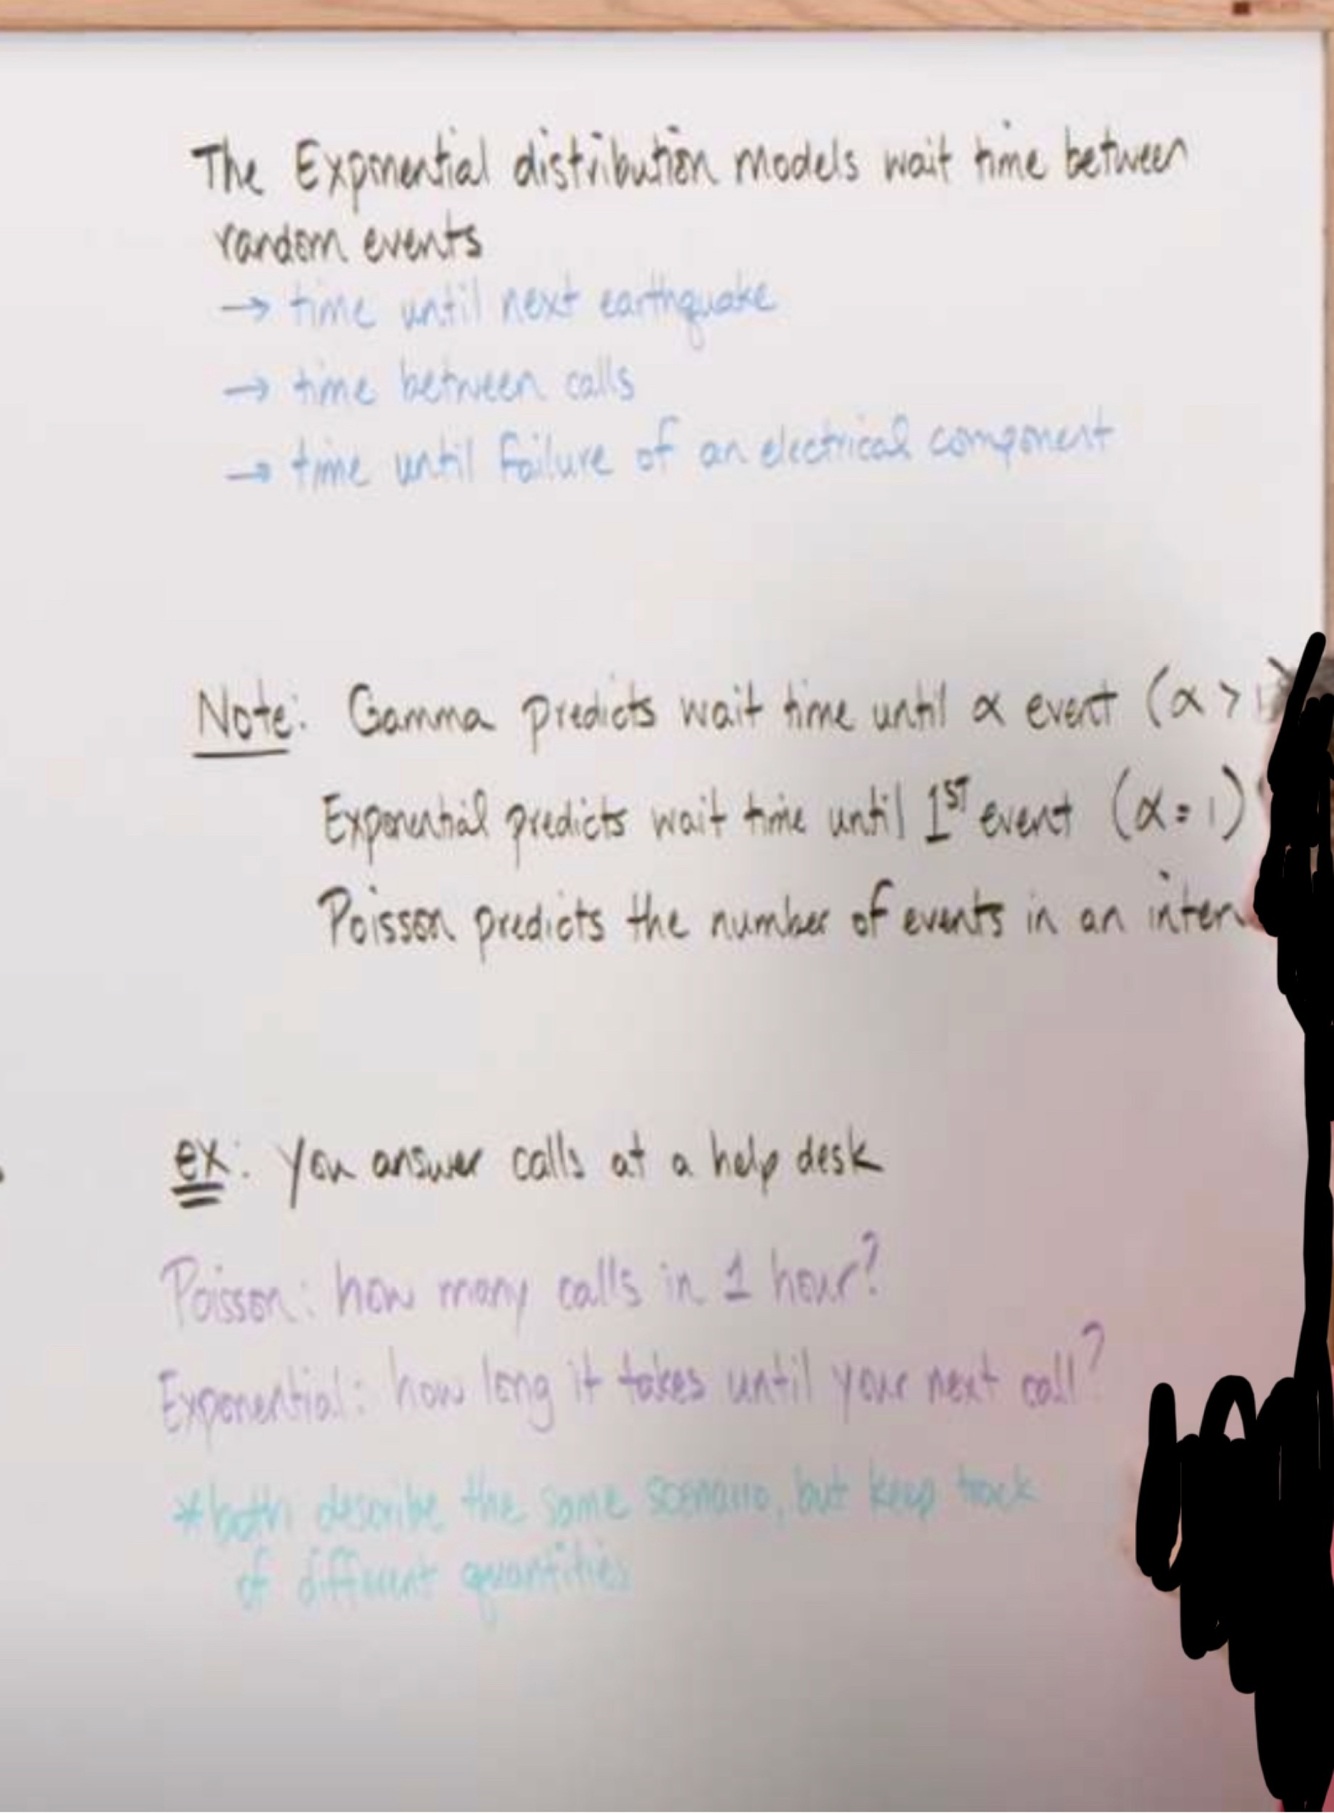 The Exponential distribution models wait time between
random events
→ time until next earthquake
→ time between calls
→ time until failure of an electrical component
Note: Gamma predicts wait time until α event (α > 1)
Exponential predicts wait time until 1ST event (α = 1)
Poisson predicts the number of events in an inter
ex: you answer calls at a help desk
Poisson: how many calls in 1 hour?
Exponential: how long it takes until your next call?
*both describe the same scenario, but keep track
of different quantities